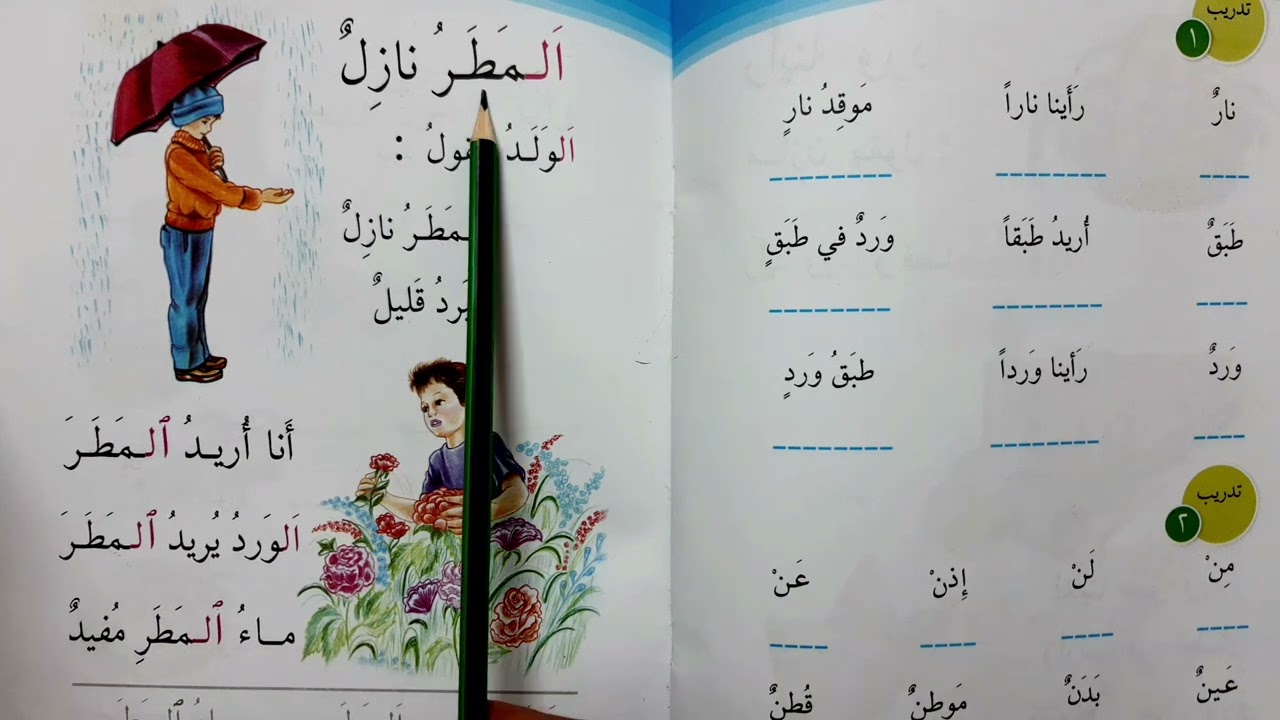 اَلـمَطَـرُ نازِلٌ
اَلوَلَـدُ :
نازِلٌ
قَليلٌ
أَنا أُريـدُ ٱلـمَطَـرَ
اَلوَردُ يُريدُ ٱلـمَطَـرَ
مـاءُ ٱلـمَطَرِ مُفيدٌ
تدريب
١
نارٌ رَأَينا ناراً مَوقِدُ نارٍ
طَبَقٌ أُريدُ طَبَقاً وَردٌ في طَبَقٍ
وَردٌ رَأَينا وَرداً طبَقُ وَردٍ
تدريب
٢
مِنْ لَنْ إِذنْ عَنْ
عَينٌ بَدَنٌ مَوطنٌ قُطنٌ